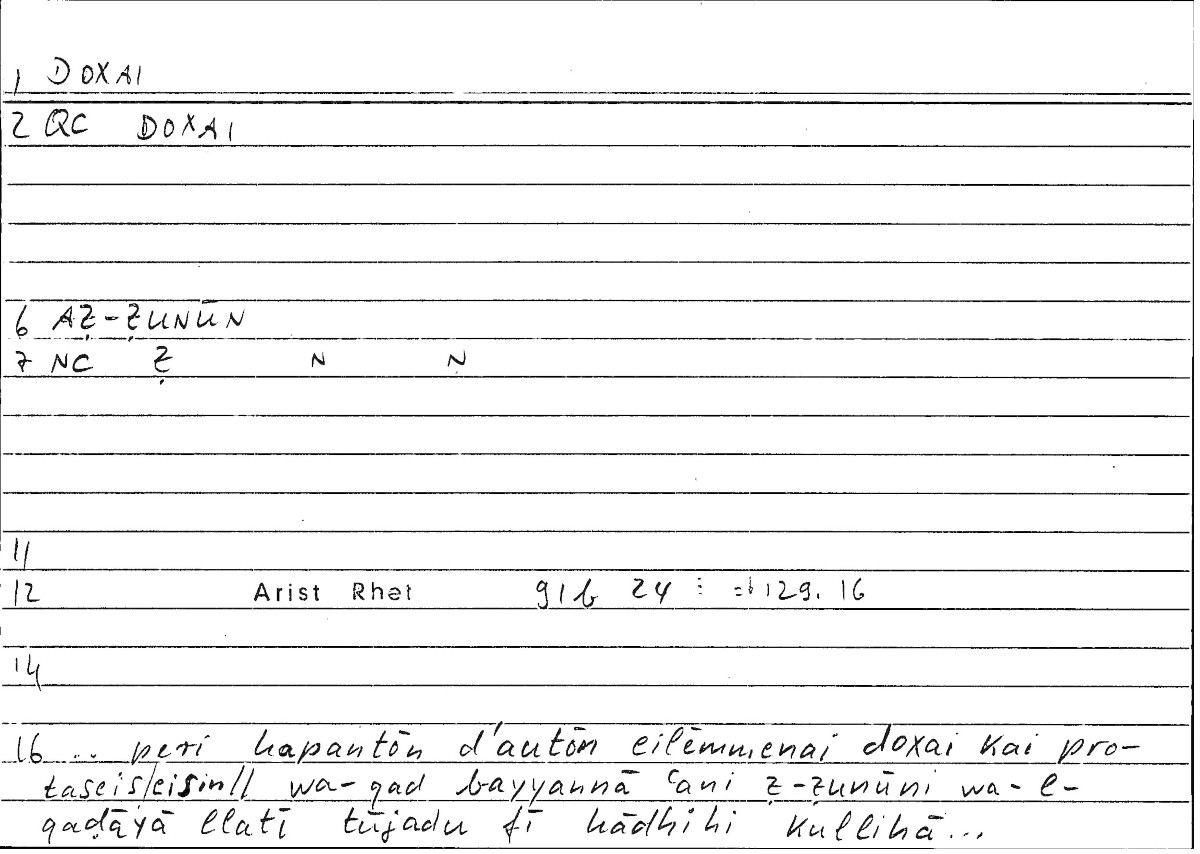 1 DOXAI
2 QC DOXAI
6 AẒ-ẒUNŪN
7 NC Ẓ N N
11
12 Arist Rhet 91b 24 129. 16
14
16 .. peri hapantōn d'autōn eilēmmenai doxai kai pro-
taseis/eisin// wa-qad bayyannā ʿani ẓ-ẓunūni wa-l-
qaḍāyā llatī tūjadu fī hādhihi kullihā...